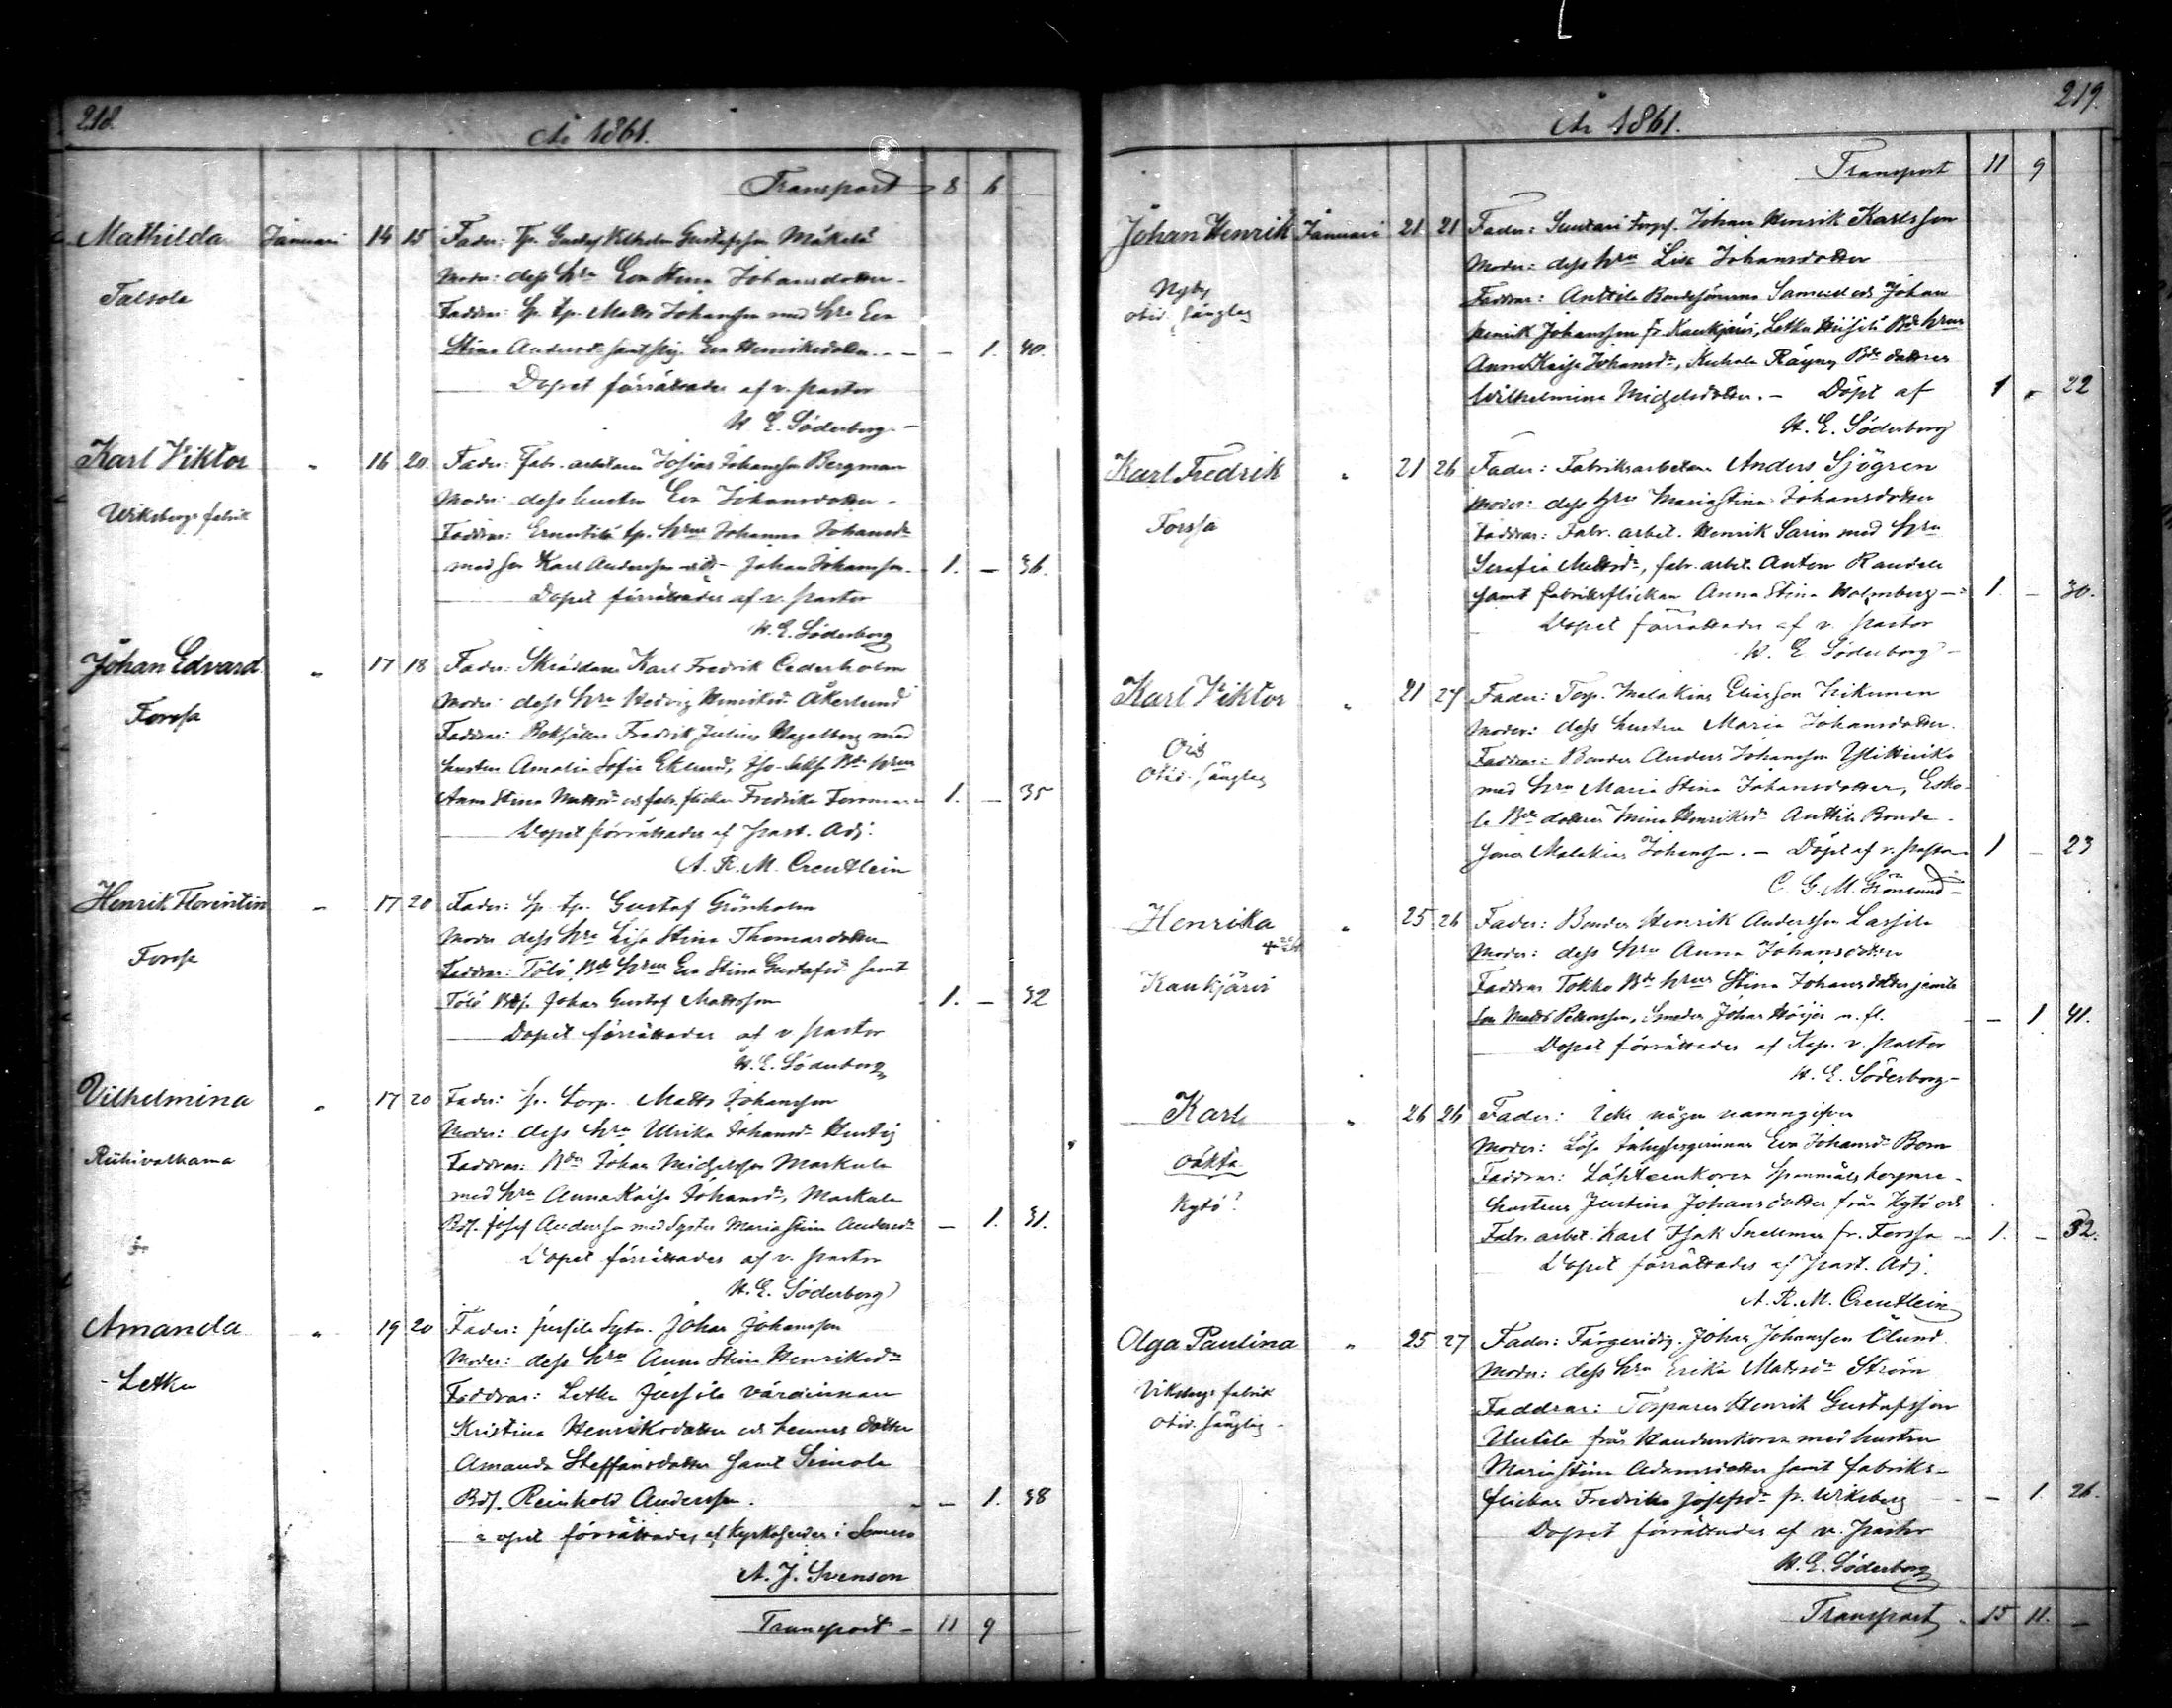 218.
År 1861.
Transport 8 6
Mathilda Januari 14 15 Fader: Tp. Gustaf Vilhelm Gustafsson Mäkelä
Moder: dess hru Eva Stina Johansdotter
Talsola
Faddrar: Sp. tp. Matts Johansson med hru Eva
Stina Andersdr samt pig. Eva Henriksdotter - 1. 40.
Dopet förrättades af v. pastor
H. E. Söderberg
Karl Viktor " 16 20 Fader: Fabr. arbetaren Josias Johansson Bergman
Moder: dess hustru Eva Johansdotter
Wiksbergs fabrik
Faddrar: tp. hrun Johanna Johansdr
med son Karl Andersson och Johan Johansson 1. - 36.
Dopet förrättades af v. pastor
H. E. Söderberg
Johan Edvard " 17 18 Fader: Skräddaren Karl Fredrik Cederholm
Moder: dess hru Hedvig Henriksdr Åkerlund
Forssa
Faddrar: Bokhållare Fredrik Julius Hagelberg med
hustru Amalia Sofia Eklund, Bde hrun
Anna Stina Mattsdr och fabr. flickan Fredrika 1. - 35
Dopet förrättades af past. Adj.
A. R. M. Creutlein
Henrik Florentin " 17 20 Fader: Sp. tp. Gustaf Grönholm
Moder dess hru Lisa Stina Thomasdotter
Forssa
Faddrar: Tölö Bde hrun Eva Stina Gustafsdr samt
Tölö Bds. Johan Gustaf Mattsson 1. - 32
Dopet förrättades af v. pastor
H. E. Söderberg
Vilhelmina " 17 20 Fader: sp. torp. Matts Johansson
Moder: dess hru Ulrika Johansdr
Riihivalkama
Faddrar: Bden Johan Michelsson Markula
med hru Anna Kaisa Johansdr, Markula
Bds. Josef Andersson med Syster Maria Stina Andersdr - 1. 31.
Dopet förrättades af v. pastor
H. E. Söderberg
Amanda " 19 20 Fader: Jussila Johan Johansson
Moder: dess hru Anna Stina Henriksdr
Letku
Faddrar: Letku Jussila värdinnan
Kristina Henriksdotter och hennes dotter
Amanda Steffansdotter samt Simola
Bds. Reinhold Andersson. - 1. 38
Dopet förrättades af Kyrkoherden i Somero
A. J. Svenson
Transport 11 9
219.
År 1861.
Transport 11 9
Johan Henrik Januari 21 21 Fader: Suutari torps. Johan Henrik Karlsson
Moder: dess hru Lisa Johansdotter
Nyby
obid. sängleg
Faddrar: Anttila Bondesönerna Samuel och Johan
Henrik Johansson fr. Kaukjärvi, Letku Bde hrun
Anna Kaisa Johansdr, Kuhala Bde dottren
Wilhelmina Michelsdotter. - Döpt af 1 - 22
H. E. Söderberg
Karl Fredrik " 21 26 Fader: Fabriksarbetaren Anders Sjögren
Moder: dess hru Maria Stina Johansdotter
Forssa
Faddrar: Fabr. arbet. Henrik Sarin med hru
Serafia Mattsdr, fabr. arbet. Anton
samt fabriksflickan Anna Stina Holmberg 1. - 30.
Dopet förrättades af v. pastor
H. E. Söderberg
Karl Viktor " 21 27 Fader: Torp. Malakias Eliasson
Moder: dess hustru Maria Johansdotter
obid. sängleg
Faddrar: Bonden Anders Johansson
med hru Maria Stina Johansdotter, Esko-
la Bde dotter Mina Henriksdr Anttila Bonde-
sonen Malakias Johansson. - Döpt af v. pastor 1 - 23
C. G. M. Grönlund
Henrika " 25 26 Fader: Bonden Henrik Andersson Lassila
Moder: dess hru Anna Johansdotter
Kaukjärvi
Faddrar Tokko Bde hrun Stina Johansdotter jemte
son Matts Pettersson, Smeden Johan Höijer m. fl. - 1. 41.
Dopet förrättades af Kap. v. pastor
H. E. Söderberg
Karl " 26 26 Fader: Icke någon namngifven
Moder: Lösa Eva Johansdr Born
oäkta
Kytö?
Faddrar: Lähteenkorva
hustrun Justina Johansdotter från Kytö och
Fabr. arbet. Karl Isak Snellman fr. Forssa 1. - 32.
Dopet förrättades af past. Adj.
A. R. M. Creutlein
Olga Paulina " 25 27 Fader: Färgeridrg. Johan Johansson Ölund
Moder: dess hru Erika Matsdr Ström
Viksbergs fabrik
obid. sänglig
Faddrar: Torparen Henrik Gustafsson
Uutela från Haudankorva med hustru
Maria Stina Adamsdotter samt fabriks-
flickan Fredrika Josefsdr fr. Wiksberg - 1. 26.
Dopet förrättades af v. pastor
H. E. Söderberg
Transport 15 11. -